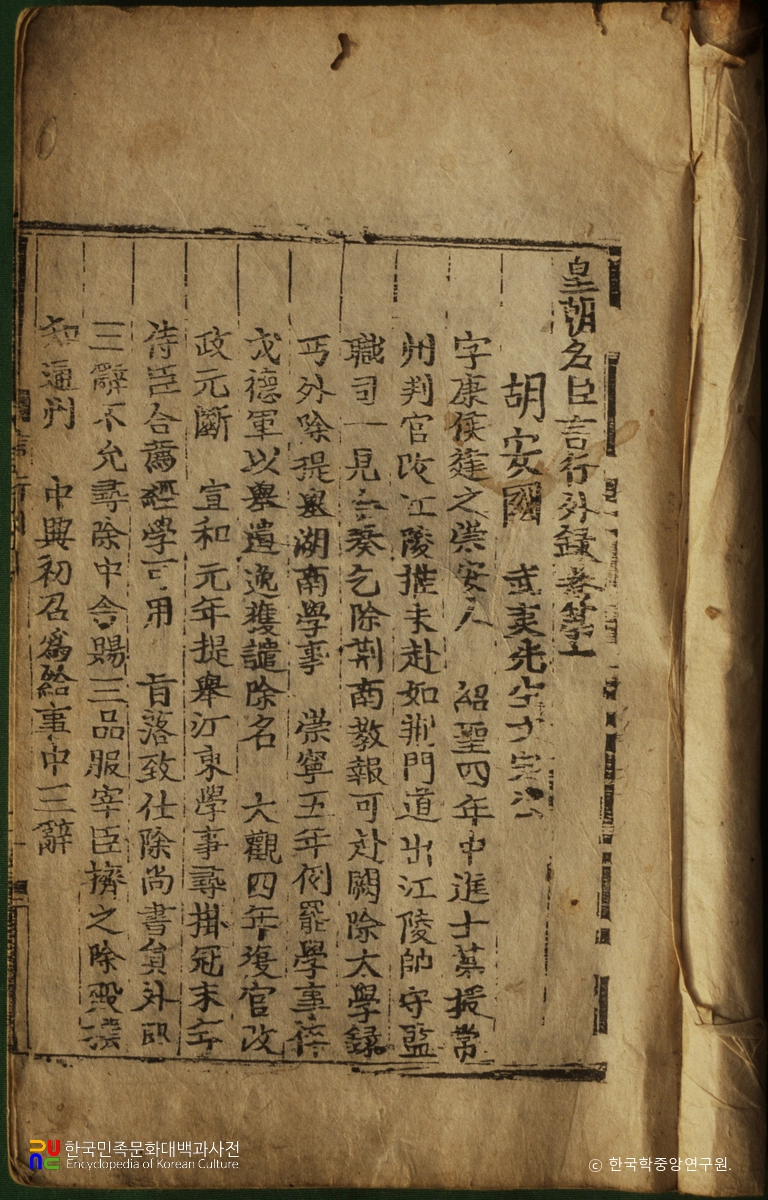 皇朝名臣言行外録卷第七
胡安國 武夷先生文定公
字康侯建之崇安人 紹聖四年中進士第授常
州判官改江陵推未赴如荆門道出江陵帥守監
職司一見交奏乞除荆南教報可赴闕除太學録
丐外除提舉湖南學事 崇寧五年例罷學事
戊德軍以舉遺逸獲譴除名 大觀四年復官改
政元斷 宣和元年提舉江東學事尋掛冠末年
侍臣合薦經學可用 旨落致仕除尚書員外郎
三辭不允尋除中舍賜三品服宰臣擠之除
知通州 中興初召爲給事中三辭
한국민족문화대백과사전
Encyclopedia of Korean Culture
© 한국학중앙연구원.